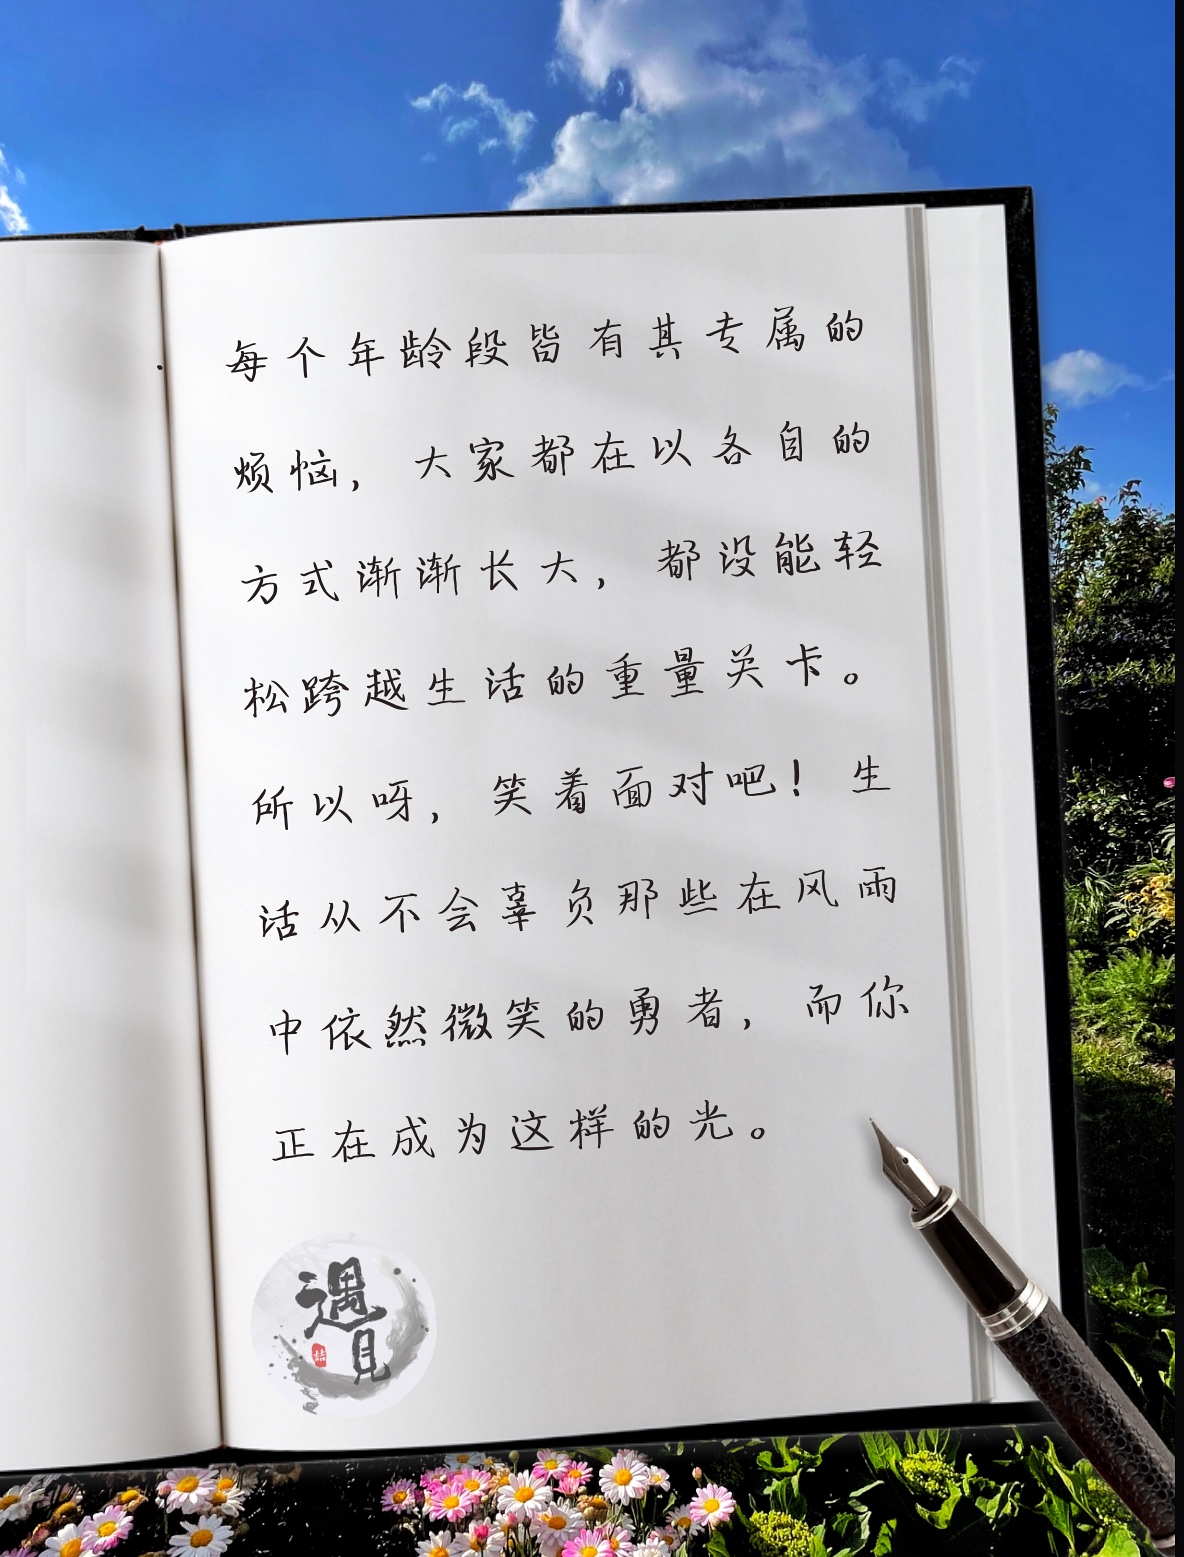 每个年龄段皆有其专属的
烦恼，大家都在以各自的
方式渐渐长大，都没能轻
松跨越生活的重量关卡。
所以呀，笑着面对吧！生
活从不会辜负那些在风雨
中依然微笑的勇者，而你
正在成为这样的光。
遇
見